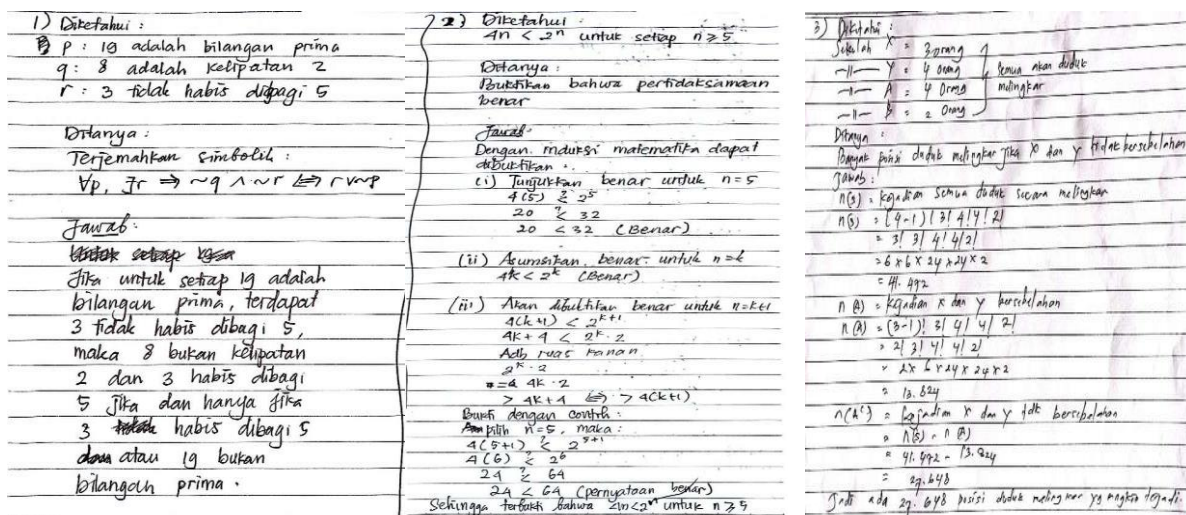 1) Diketahui :
p : 19 adalah bilangan prima
q : 8 adalah kelipatan 2
r : 3 tidak habis dibagi 5
Ditanya :
Terjemahkan simbolik :
∀p, ∃r ⇒ ~q ∧ ~r ⇔ r ∨ ~p
Jawab :
Jika untuk setiap 19 adalah
bilangan prima, terdapat
3 tidak habis dibagi 5,
maka 8 bukan kelipatan
2 dan 3 habis dibagi
5 jika dan hanya jika
3 habis dibagi 5
atau 19 bukan
bilangan prima.
2) Diketahui :
4n < 2^n untuk setiap n ≥ 5
Ditanya :
Buktikan bahwa pertidaksamaan
benar
Jawab :
Dengan induksi matematika dapat
dibuktikan :
(i) Tunjukkan benar untuk n = 5
4(5) ?< 2^5
20 ?< 32
20 < 32 (Benar)
(ii) Asumsikan benar untuk n = k
4k < 2^k (Benar)
(iii) Akan dibuktikan benar untuk n = k+1
4(k+1) < 2^{k+1}
4k + 4 < 2^k . 2
Adb ruas kanan
2^k . 2
= 4k . 2
> 4k + 4 ⇔ > 4(k+1)
Bukti dengan contoh :
pilih n = 5, maka :
4(5+1) ?< 2^{5+1}
4(6) ?< 2^6
24 ?< 64
24 < 64 (pernyataan benar)
Sehingga terbukti bahwa 4n < 2^n untuk n ≥ 5
3) Diketahui :
Sekolah X = 3 orang
—11— Y = 4 orang
—11— A = 4 orang
—11— B = 2 orang
Semua akan duduk
melingkar
Ditanya :
Banyak posisi duduk melingkar jika X dan Y tidak bersebelahan
Jawab :
n(S) = kejadian semua duduk secara melingkar
n(S) = (4-1)! 3! 4! 4! 2!
= 3! 3! 4! 4! 2!
= 6 x 6 x 24 x 24 x 2
= 41.472
n(A) = kejadian X dan Y bersebelahan
n(A) = (3-1)! 3! 4! 4! 2!
= 2! 3! 4! 4! 2!
= 2 x 6 x 24 x 24 x 2
= 13.824
n(A') = kejadian X dan Y tdk bersebelahan
= n(S) - n(A)
= 41.472 - 13.824
= 27.648
Jadi ada 27.648 posisi duduk melingkar yg mungkin terjadi.